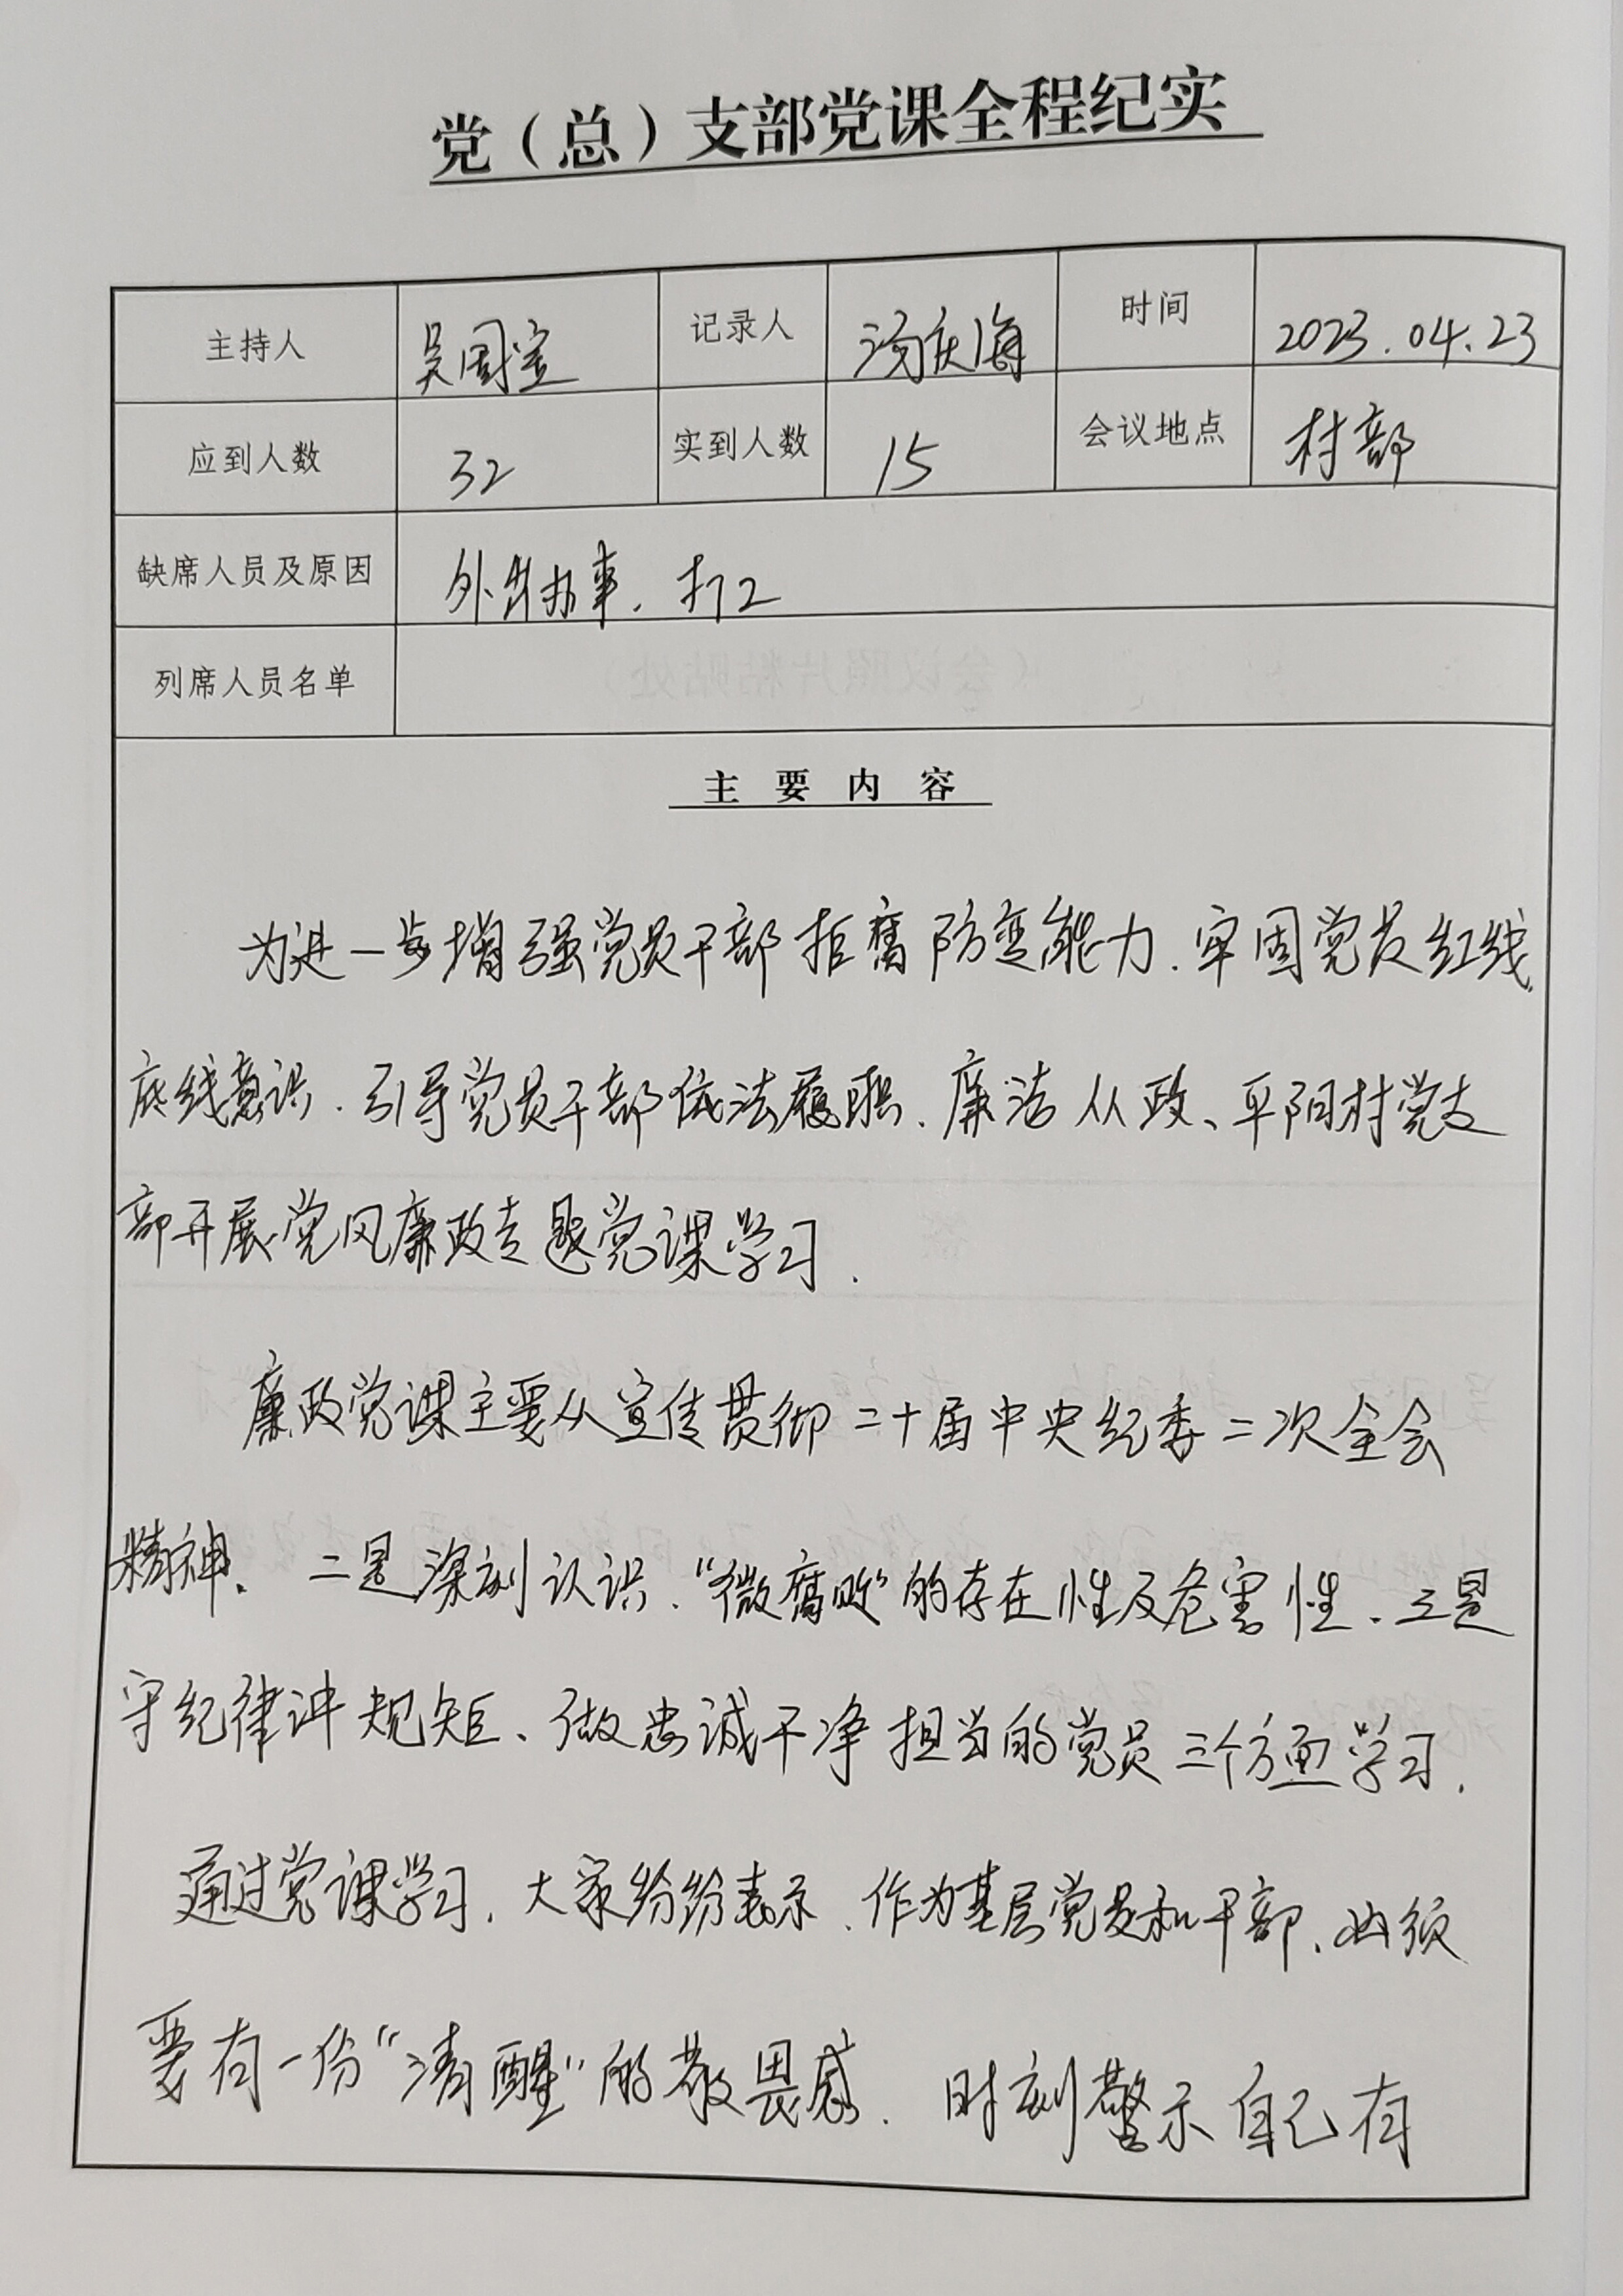 党（总）支部党课全程纪实
主持人 吴国宝 记录人 汤庆海 时间 2023.04.23
应到人数 32 实到人数 15 会议地点 村部
缺席人员及原因 外出办事、打工
列席人员名单
主要内容
为进一步增强党员干部拒腐防变能力、牢固党员红线
底线意识、引导党员干部依法履职、廉洁从政、平阳村党支
部开展党风廉政专题党课学习.
廉政党课主要从宣传贯彻二十届中央纪委二次全会
精神、二是深刻认识、“微腐败”的存在性及危害性、三是
守纪律讲规矩、做忠诚干净担当的党员三个方面学习.
通过党课学习、大家纷纷表示、作为基层党员和干部、必须
要有一份“清醒”的敬畏感、时刻警示自己有